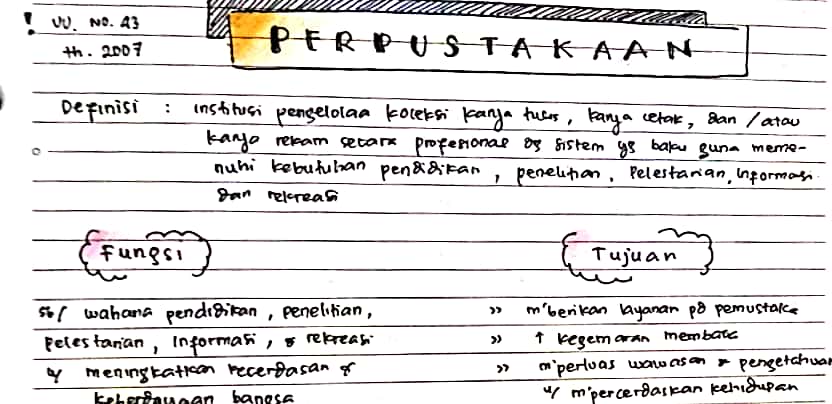 ! UU. No. 43
th. 2007
PERPUSTAKAAN
Definisi : institusi pengelolaa koleksi karya tulis, karya cetak, dan / atau
karya rekam secara profesional dg sistem yg baku guna meme-
nuhi kebutuhan pendidikan, penelitian, pelestarian, informasi
dan rekreasi
Fungsi
Tujuan
sb/ wahana pendidikan, penelitian,
pelestarian, informasi, & rekreasi
u/ meningkatkan kecerdasan &
keberdayaan bangsa
>> m'berikan layanan pd pemustaka
>> ↑ kegemaran membaca
>> m'perluas wawasan & pengetahuan
u/ m'percerdaskan kehidupan